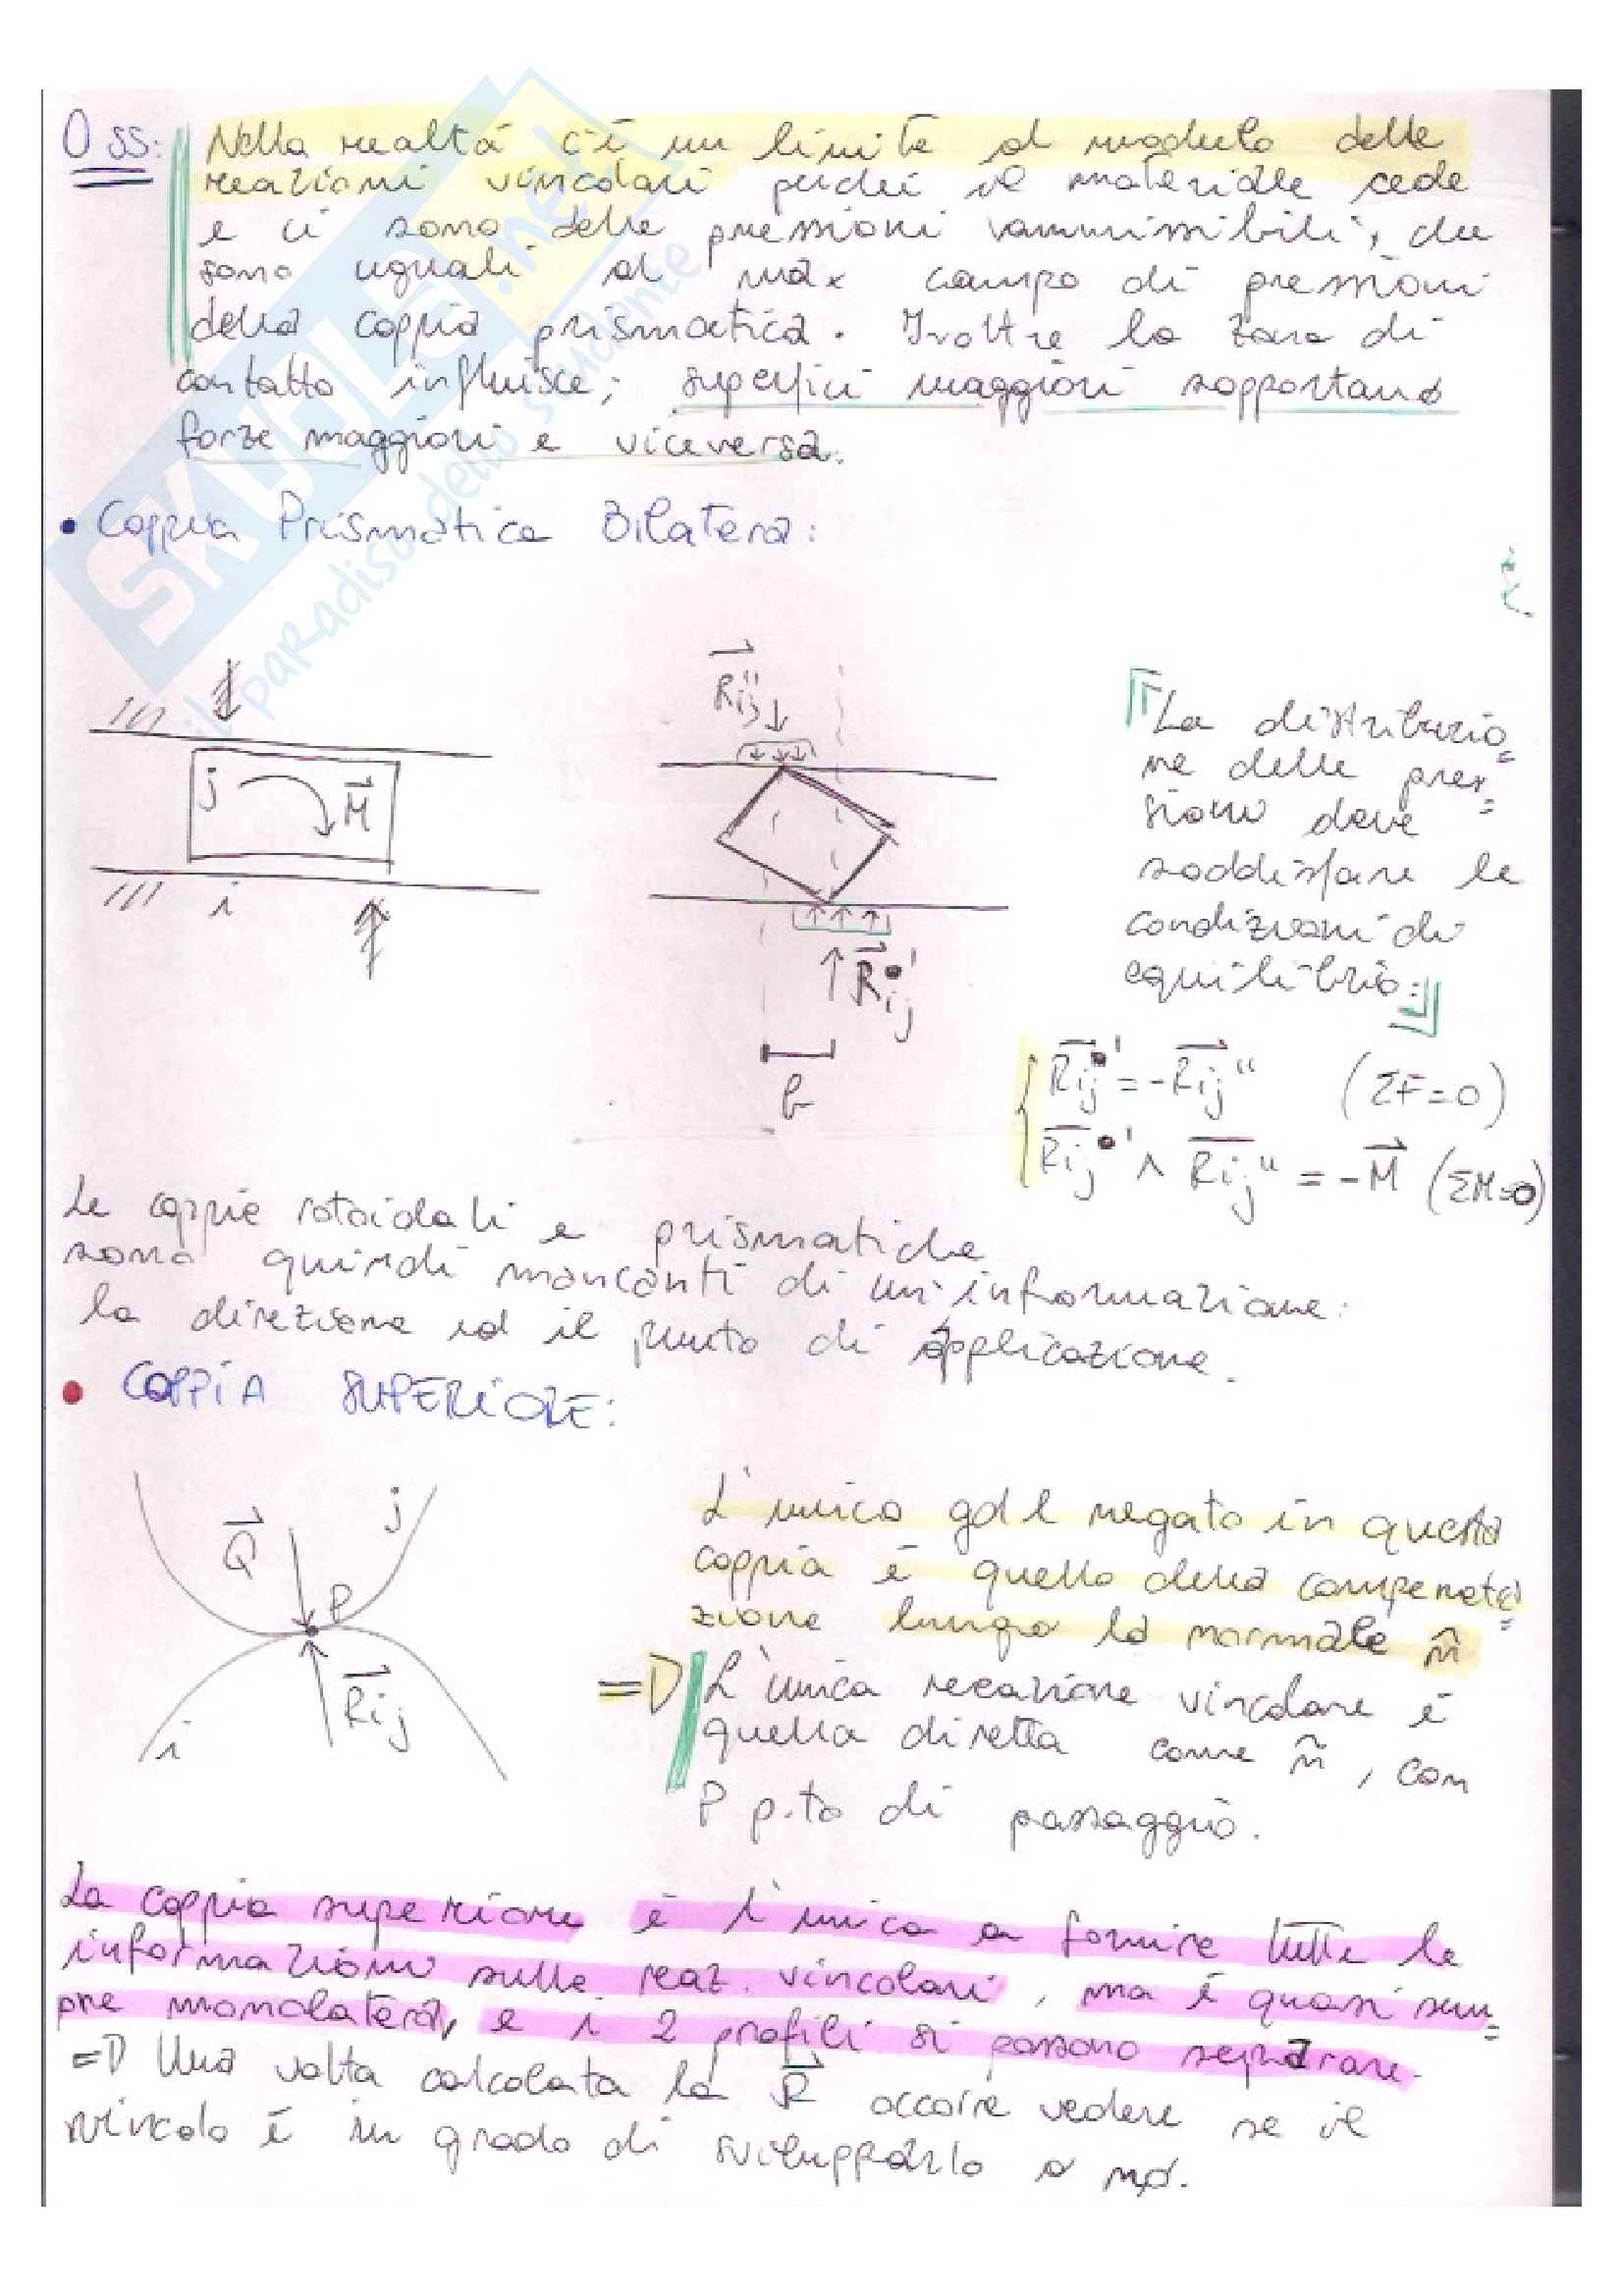 Oss: Nella realtà c'è un limite al modulo delle
reazioni vincolari perché il materiale cede
e ci sono delle pressioni ammissibili, che
sono uguali al max campo di pressioni
della coppia prismatica. Inoltre la zona di
contatto influisce; superfici maggiori sopportano
forze maggiori e viceversa.
SKUOLA.net
il paradiso dello studente
• Coppia Prismatica Bilatera:
j M
i
Rij''
Rij'
b
La distribuzio=
ne delle pres=
sioni deve
soddisfare le
condizioni di
equilibrio:
Rij' = -Rij'' (ΣF=0)
Rij' ∧ Rij'' = -M (ΣM=0)
Le coppie rotoidali e prismatiche
sono quindi mancanti di un'informazione:
la direzione ed il punto di applicazione.
• COPPIA SUPERIORE:
Q j
P
Rij
i
L'unico gdl negato in questa
coppia è quello della compenetra
zione lungo la normale n̂
=D L'unica reazione vincolare è
quella diretta come n̂, con
P p.to di passaggio.
La coppia superiore è l'unica a fornire tutte le
informazioni sulle reaz. vincolari, ma è quasi sem=
pre monolatera, e i 2 profili si possono separare.
=D Una volta calcolata la R occorre vedere se il
vincolo è in grado di svilupparla o no.